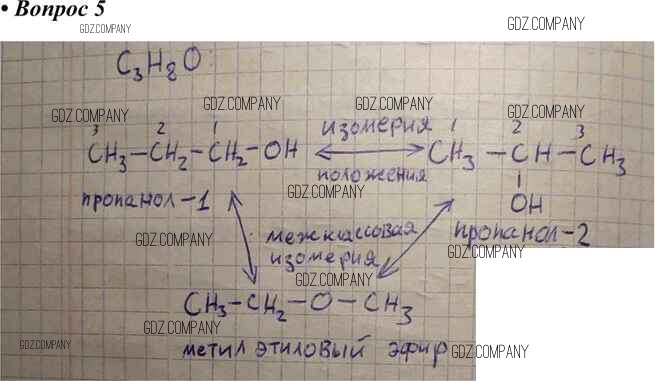 • Вопрос 5
GDZ.COMPANY
GDZ.COMPANY
C₃H₈O:
GDZ.COMPANY
GDZ.COMPANY
GDZ.COMPANY
GDZ.COMPANY
3 2 1
CH₃–CH₂–CH₂–OH
изомерия
положения
1 2 3
CH₃–CH–CH₃
OH
GDZ.COMPANY
пропанол-1
пропанол-2
GDZ.COMPANY
межклассовая
изомерия
GDZ.COMPANY
GDZ.COMPANY
CH₃–CH₂–O–CH₃
GDZ.COMPANY
GDZ.COMPANY
метил этиловый эфир
GDZ.COMPANY